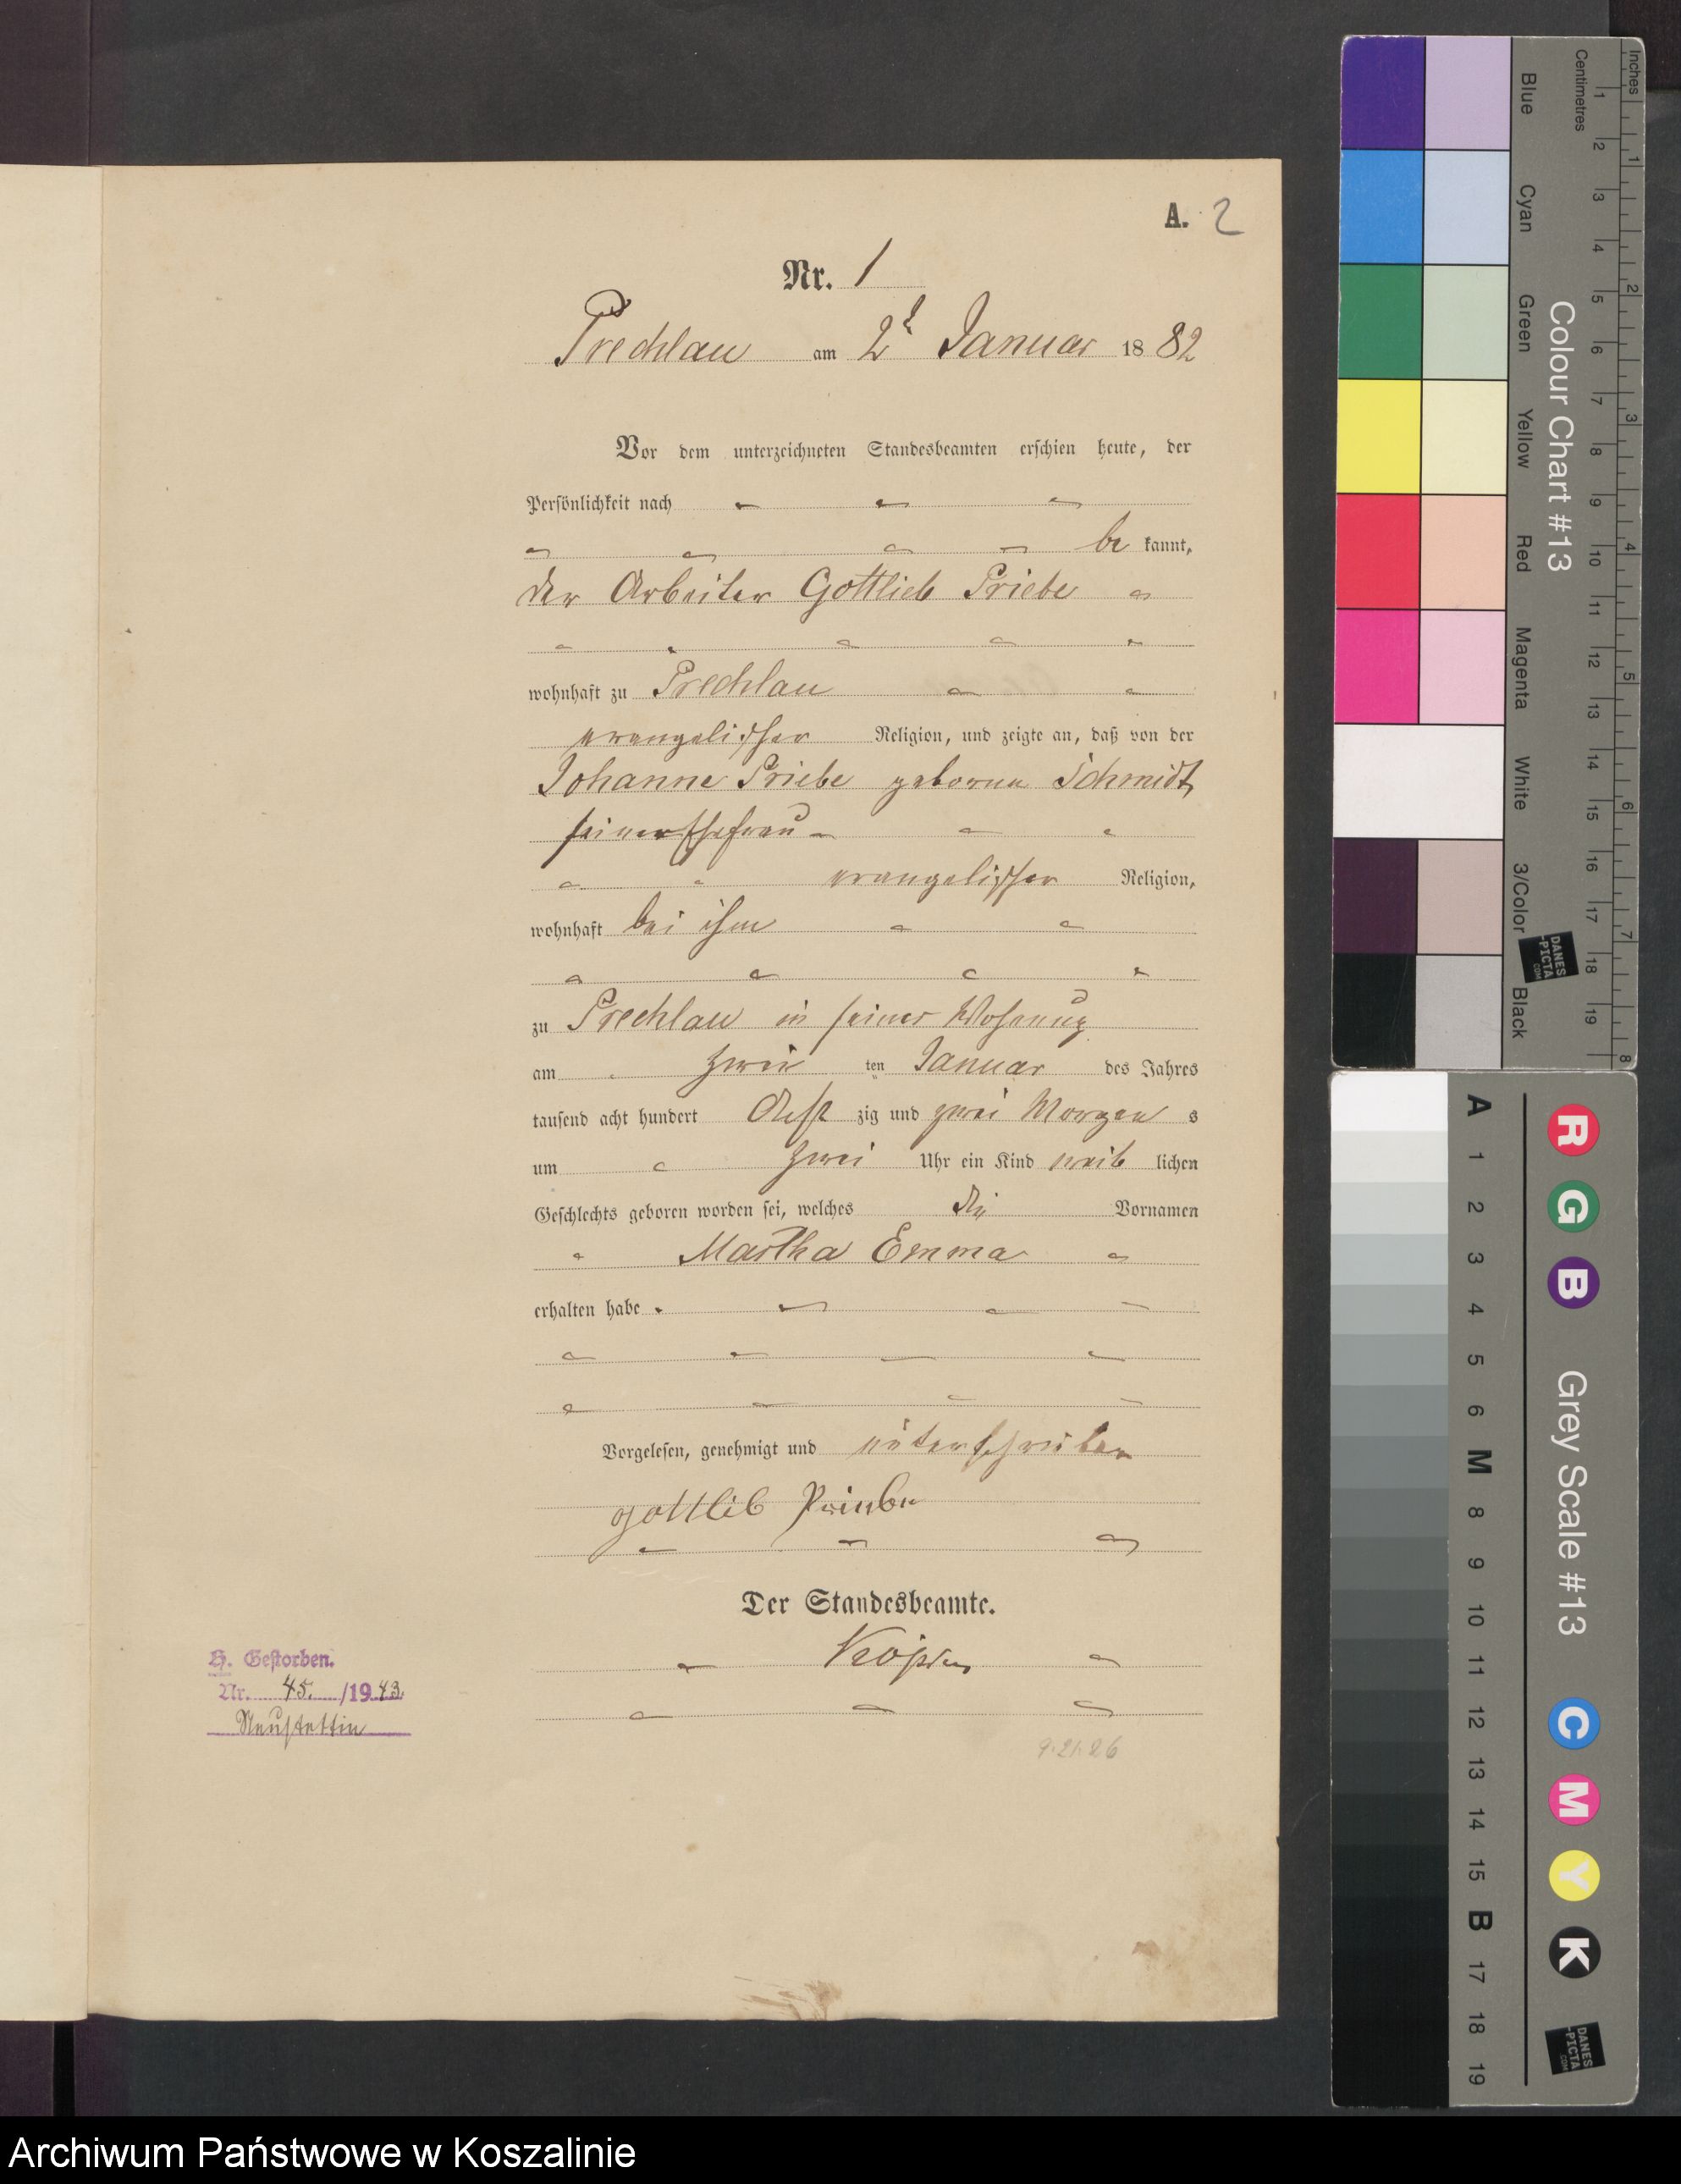 A. 2
Nr. 1
Prechlau am 2t Januar 1882
Vor dem unterzeichneten Standesbeamten erschien heute, der
Persönlichkeit nach
be kannt,
der Arbeiter Gottlieb Priebe
wohnhaft zu Prechlau
evangelischer Religion, und zeigte an, daß von der
Johanne Priebe geborene Schmidt,
seiner Ehefrau
evangelischer Religion,
wohnhaft bei ihm
zu Prechlau in seiner Wohnung
am zwei ten Januar des Jahres
tausend acht hundert acht zig und zwei Morgen s
um zwei Uhr ein Kind weib lichen
Geschlechts geboren worden sei, welches die Vornamen
Martha Emma
erhalten habe
Vorgelesen, genehmigt und unterschrieben
gottlib Priebe
Der Standesbeamte.
H. Gestorben.
Nr. 45. /1943.
Neustettin
9.21.86
Inches
Centimetres
1 2 3 4 5 6 7 8 9 10 11 12 13 14 15 16 17 18 19
1 2 3 4 5 6 7 8
Colour Chart #13
Blue
Cyan
Green
Yellow
Red
Magenta
White
3/Color
Black
DANES
-PICTA
.COM
A 1 2 3 4 5 6 M 8 9 10 11 12 13 14 15 B 17 18 19
R G B
Grey Scale #13
C M Y K
DANES
-PICTA
.COM
Archiwum Państwowe w Koszalinie